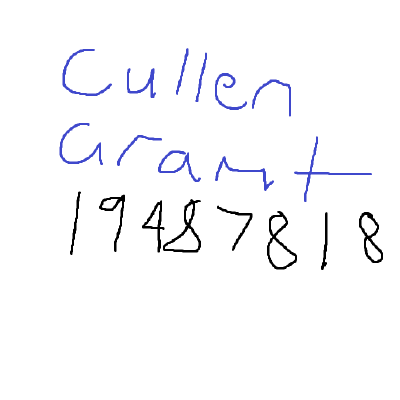 Cullen
Grant
19487818